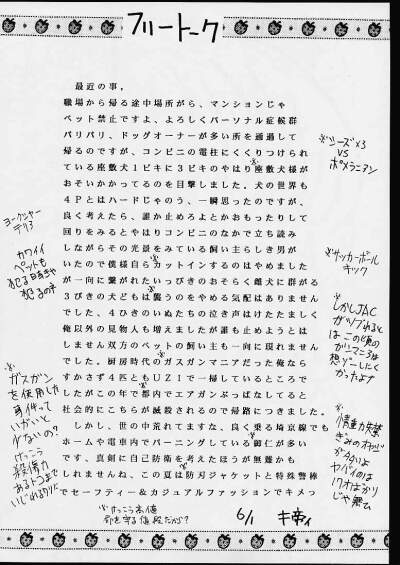 フリートーク
最近の事,
職場から帰る途中場所がら、マンションじゃ
ペット禁止ですよ、よろしくパーソナル症候群
バリバリ、ドッグオーナーが多い所を通過して
帰るのですが、コンビニの電柱にくくりつけられ
ている座敷犬1ピキに3ピキのやはり座敷犬様が
おそいかかってるのを目撃しました。犬の世界も
4Pとはハードじゃのう、一瞬思ったのですが、
良く考えたら、誰か止めろよとかおもったりして
回りをみるとやはりコンビニのなかで立ち読み
しながらその光景をみている飼い主らしき男が
いたので僕様自らカットインするのはやめました
が一向に繋がれたいっぴきのおそらく雌犬に群がる
3びきの犬どもは襲うのをやめる気配はありません
でした、4ひきのいぬたちの泣き声はけたたましく
俺以外の見物人も増えましたが誰も止めようとは
しません双方のペットの飼い主も一向に現れません
でした。厨房時代のガスガンマニアだった俺なら
すかさず4匹ともUZIで一掃しているところで
したがこの年で都内でエアガンぶっぱなしてると
社会的にこちらが滅殺されるので帰路につきました。
しかし、世の中荒れてますな、良く乗る埼京線でも
ホームや電車内でバーニングしている御仁が多い
です、真剣に自己防衛を考えたほうが無難かも
しれませんね、この夏は防刃ジャケットと特殊警棒
でセーフティー&カジュアルファッションでキメっ
※シーズ×3
VS
ポメラニアン
ヨークシャー
テリア
カワイイ
ペットも
※サッカーボール
キック
※しかしJAC
かったよナ
※ガスガン
を使用した
事件って
いがいと
少ないの?
けっこう
殺傷力
あるトコまで
いじれるのに
多いよ
ヤバイのは
17才ばかり
じゃ無ェ
※けっこう高値
命を守る値段だから?
6/1